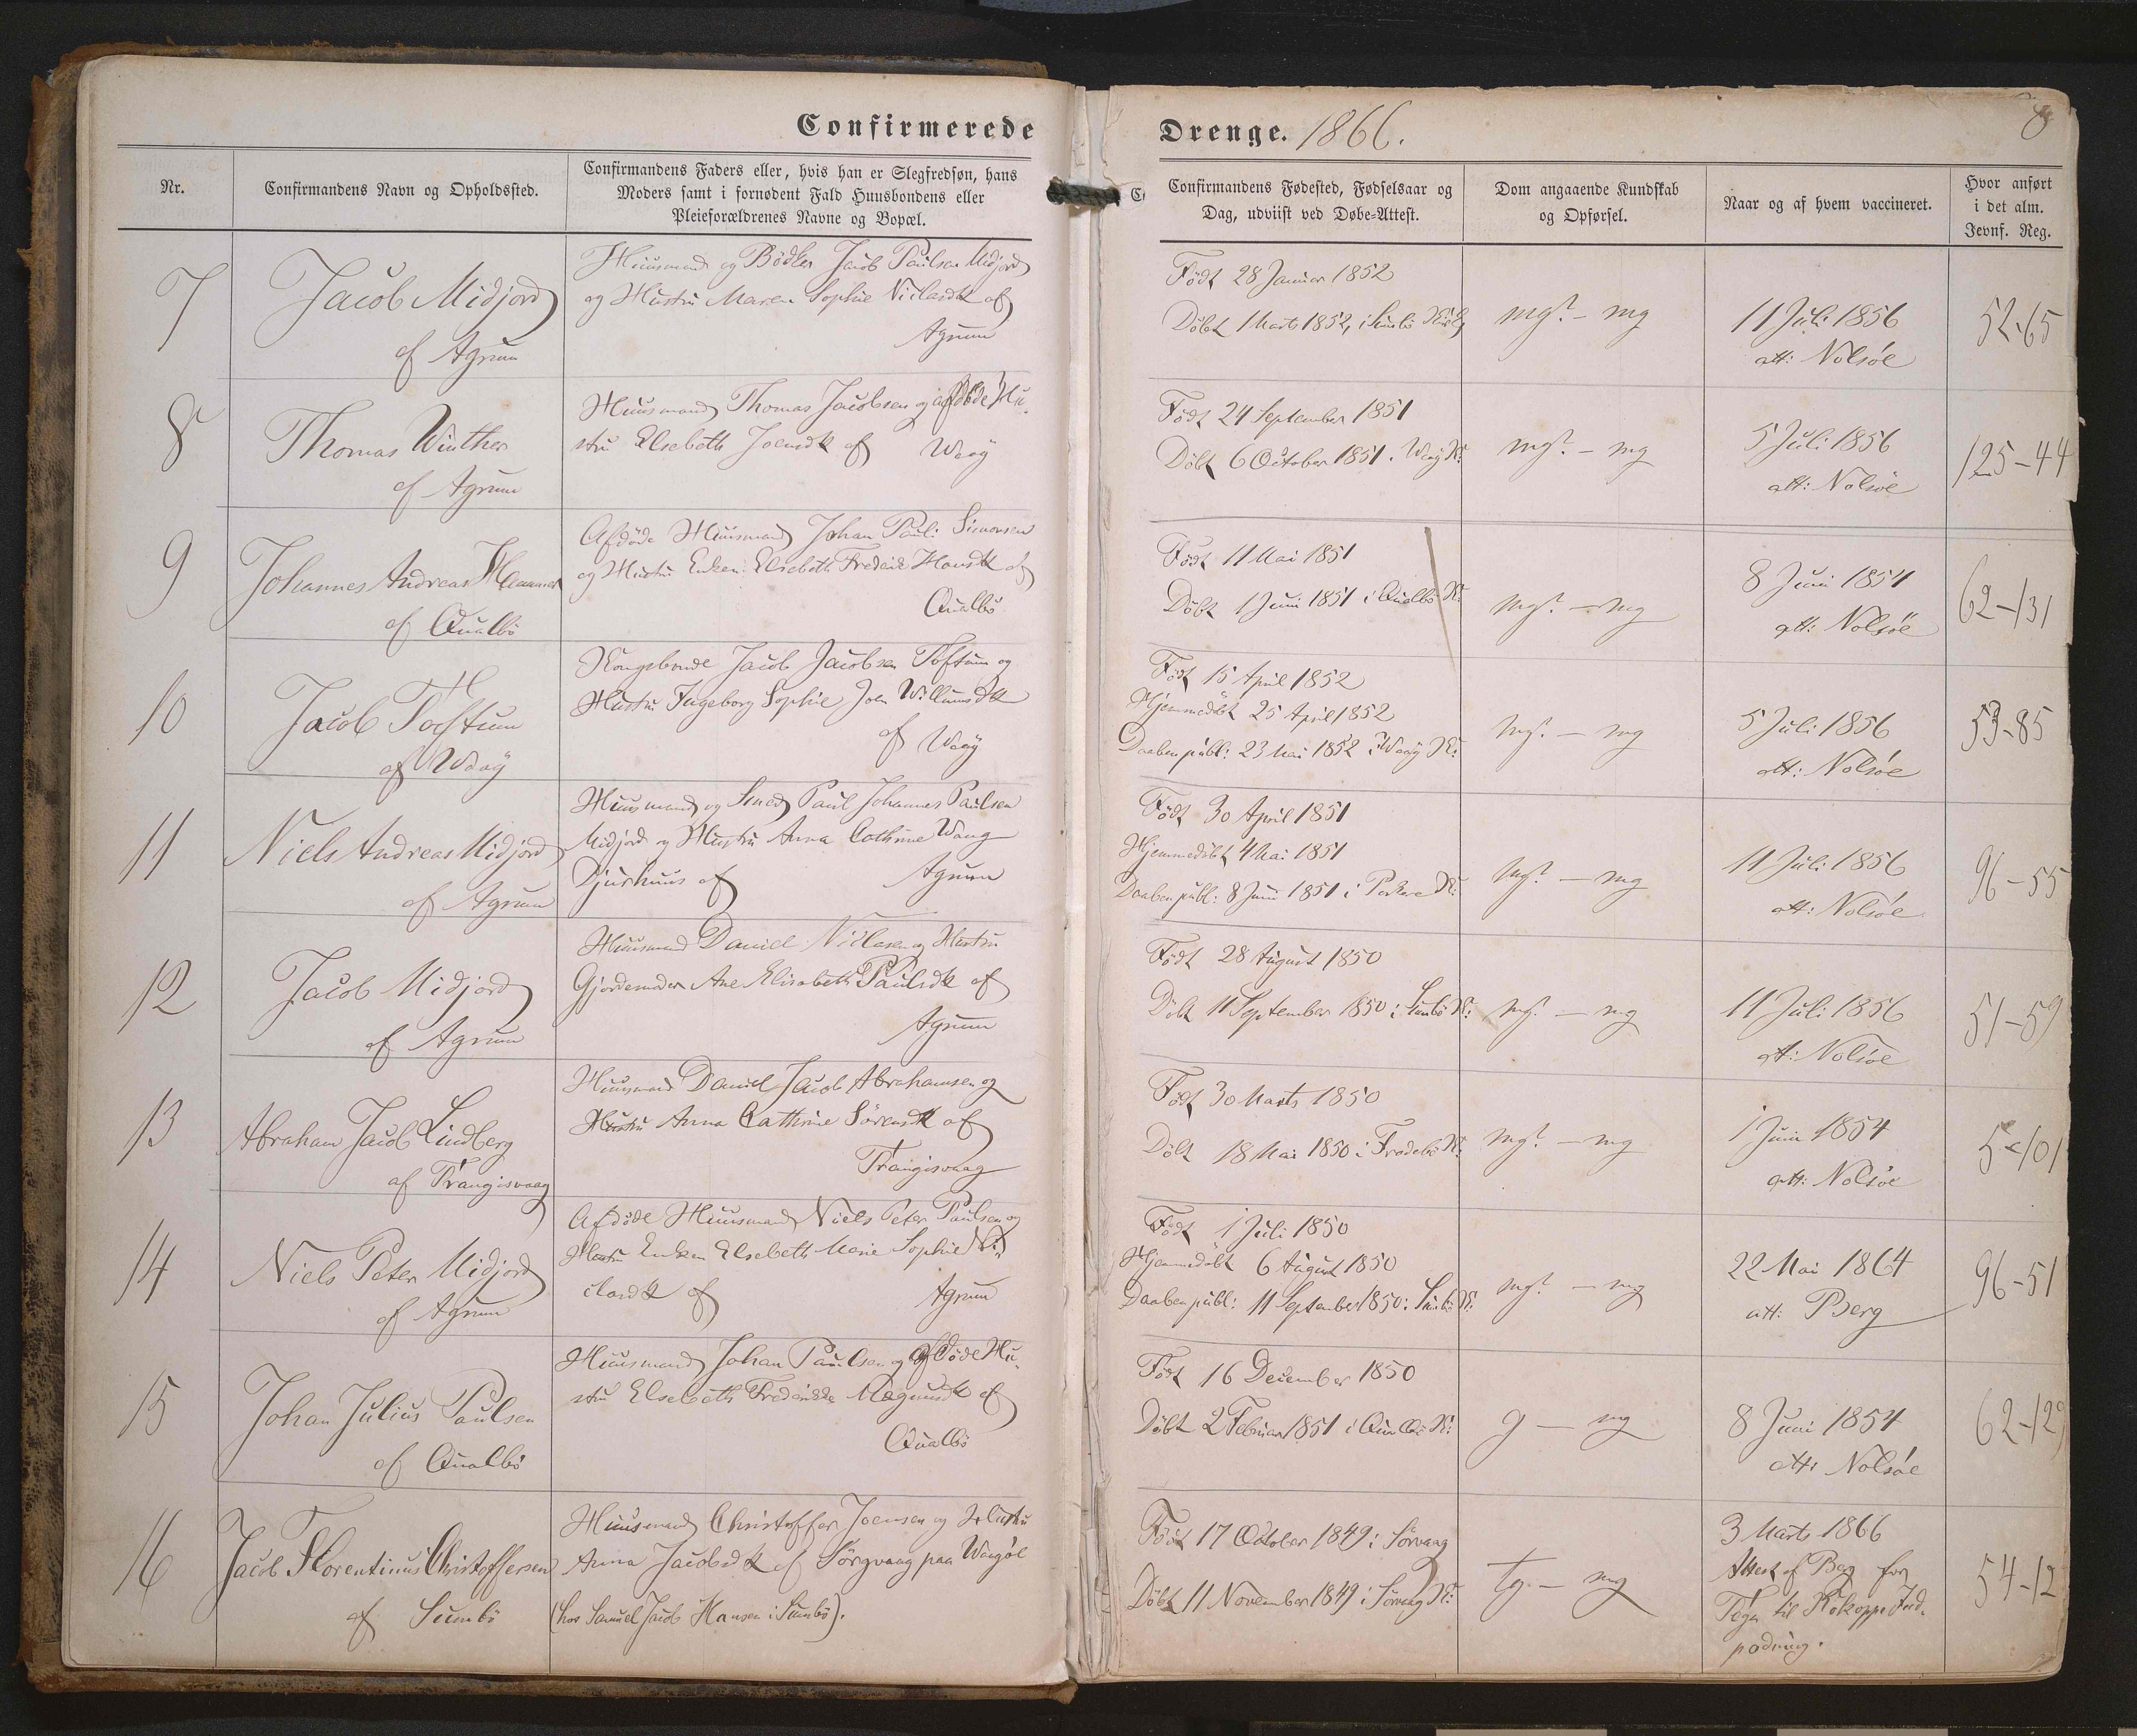 Confirmerede
Drenge. 1866.
8
Nr.
Confirmandens Navn og Opholdssted.
Confirmandens Faders eller, hvis han er Slegfredsøn, hans
Moders samt i fornødent Fald Huusbondens eller
Pleieforældrenes Navne og Bopæl.
Confirmandens Fødested, Fødselsaar og
Dag, udviist ved Døbe-Attest.
Dom angaaende Kundskab
og Opførsel.
Naar og af hvem vaccineret.
Hvor anført
i det alm.
Jevnf. Reg.
7
Jacob Midjord
af Agrum
Huusmand og Bødker Jacob Paulsen Midjord
og Hustru Maren Sophie Niclasdtr af
Agrum
Født 28 Januar 1852
Döbt 1 Marts 1852, i Sumbö Kirke
mg? - mg
11 Juli 1856
att: Nolsöe
52-65
8
Thomas Winther
af Agrum
Huusmand Thomas Jacobsen og afdöde Hu-
stru Elsebeth Joensdtr af Waag
Født 24 September 1851
Döbt 6 October 1851. Waag K:
mg? - mg
5 Juli 1856
att: Nolsöe
125-44
9
Johannes Andreas Hammer
af Qualbö
Afdöde Huusmand Johan Pauli Simonsen
og Hustru Enken Elsebeth Frederik Hansdtr af
Qualbö
Født 11 Mai 1851
Döbt 1 Juni 1851 i Qualbö K:
mg? - mg
8 Juni 1854
att: Nolsöe
62-131
10
Jacob Toftum
af Waag
Kongsbonde Jacob Jacobsen Toftum og
Hustru Ingeborg Sophie Joen Willumsdtr
af Waag
Født 15 April 1852
Hjemmedöbt 25 April 1852
Daaben publ: 23 Mai 1852 i Waag K:
mg? - mg
5 Juli 1856
att: Nolsöe
53-85
11
Niels Andreas Midjord
af Agrum
Huusmand og Smed Paul Johannes Paulsen
Midjord og Hustru Anna Cathrine Wang
Djurhuus af Agrum
Født 30 April 1851
Hjemmedöbt 4 Mai 1851
Daaben publ: 8 Juni 1851 i Porkere K:
mg? - mg
11 Juli 1856
att: Nolsöe
96-55
12
Jacob Midjord
af Agrum
Huusmand Daniel Niclasen og Hustru
Gjordemoder Ane Elisabeth Paulsdtr af
Agrum
Født 28 August 1850
Döbt 11 September 1850 i Sumbö K:
mg? - mg
11 Juli 1856
att: Nolsöe
51-59
13
Abraham Jacob Lindberg
af Trangisvaag
Huusmand Daniel Jacob Abrahamsen og
Hustru Anna Cathrine Sörensdtr af
Trangisvaag
Født 30 Marts 1850
Döbt 18 Mai 1850 i Frodebö K:
mg? - mg
1 Juni 1854
att: Nolsöe
5-101
14
Niels Peter Midjord
af Agrum
Afdöde Huusmand Niels Peter Paulsen og
Hustru Enken Elsebeth Marie Sophie Ni-
clasdtr af Agrum
Født 1 Juli 1850
Hjemmedöbt 6 August 1850
Daaben publ: 11 September 1850 i Sumbö K:
mg? - mg
22 Mai 1864
att: Berg
96-51
15
Johan Julius Paulsen
af Qualbö
Huusmand Johan Paulsen og afdöde Hu-
stru Elsebeth Frederikke Magnusdtr af
Qualbö
Født 16 December 1850
Döbt 2 Februar 1851 i Qualbö K:
g - mg
8 Juni 1854
att: Nolsöe
62-129
16
Jacob Florentinus Christoffersen
af Sumbö
Huusmand Christoffer Joensen og Hustru
Anna Jacobsdtr af Sörgvaag paa Waagöe
(hos Samuel Jacob Hansen i Sumbö).
Født 17 October 1849 i Sörvaag
Döbt 11 November 1849 i Sörvaag K:
tg. - mg
3 Marts 1866
Attest af Berg for
Tegn til Kokoppe Ind-
podning.
54-12